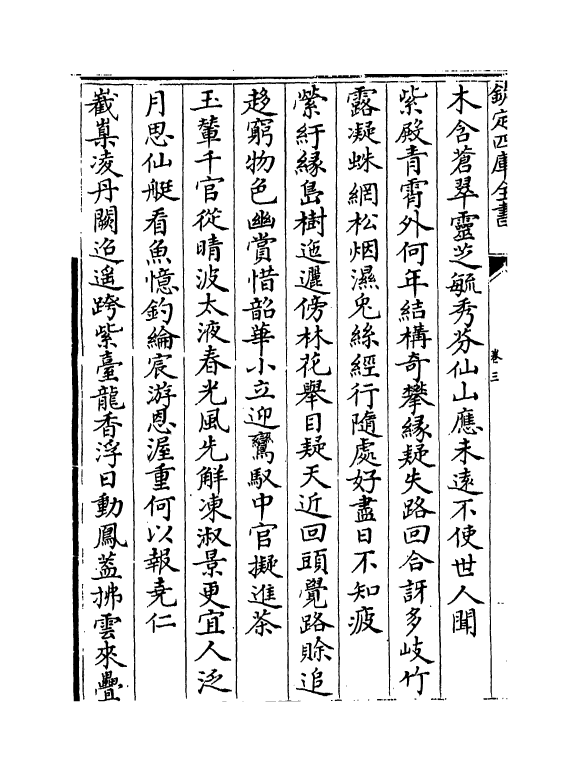 欽定四庫全書
卷三
木含蒼翠靈芝毓秀芬仙山應未遠不使世人聞
紫殿青霄外何年結構奇攀緣疑失路回合訝多岐竹
露凝蛛網松烟濕兔絲經行隨處好盡日不知疲
縈紆緣島樹迤邐傍林花舉目疑天近回頭覺路賖追
趍窮物色幽賞惜韶華小立迎鸞馭中官擬進茶
玉輦千官從晴波太液春光風先解凍淑景更宜人泛
月思仙艇看魚憶釣綸宸游恩渥重何以報堯仁
嶻嶪凌丹闕迢遥跨紫臺龍香浮日動鳳葢拂雲來疊